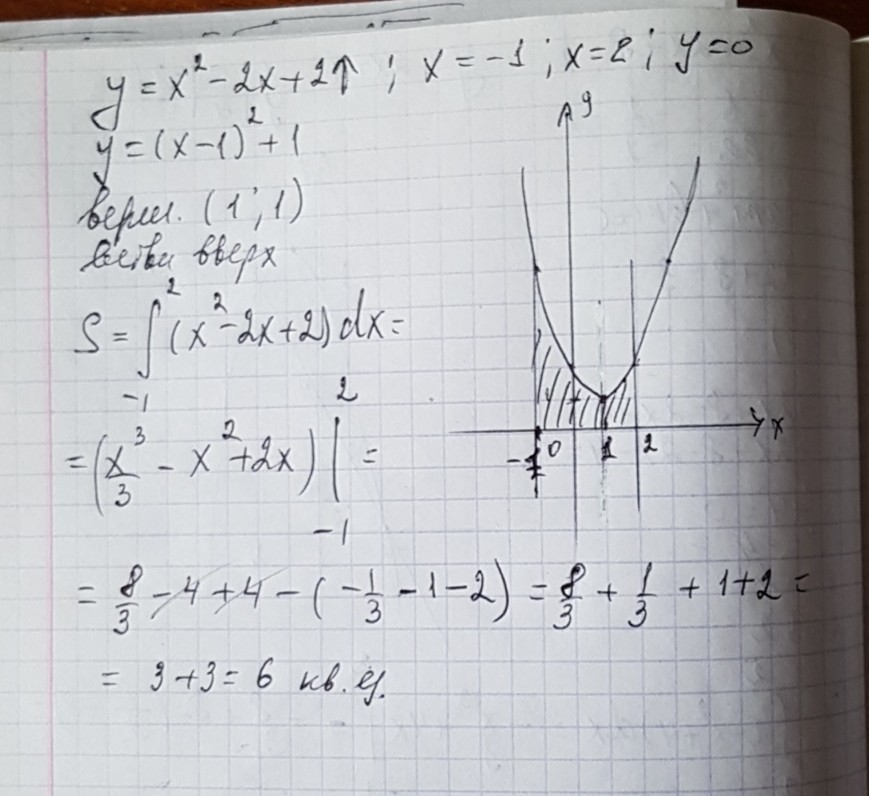 y = x² - 2x + 2↑ ; x = -1 ; x = 2 ; y = 0
y = (x-1)² + 1
верш. (1 ; 1)
ветви вверх
S = ∫₋₁² (x² - 2x + 2) dx =
= (x³/3 - x² + 2x) |₋₁² =
= 8/3 - 4 + 4 - (-1/3 - 1 - 2) = 8/3 + 1/3 + 1 + 2 =
= 3 + 3 = 6 кв. ед.
y
x
-1 0 1 2